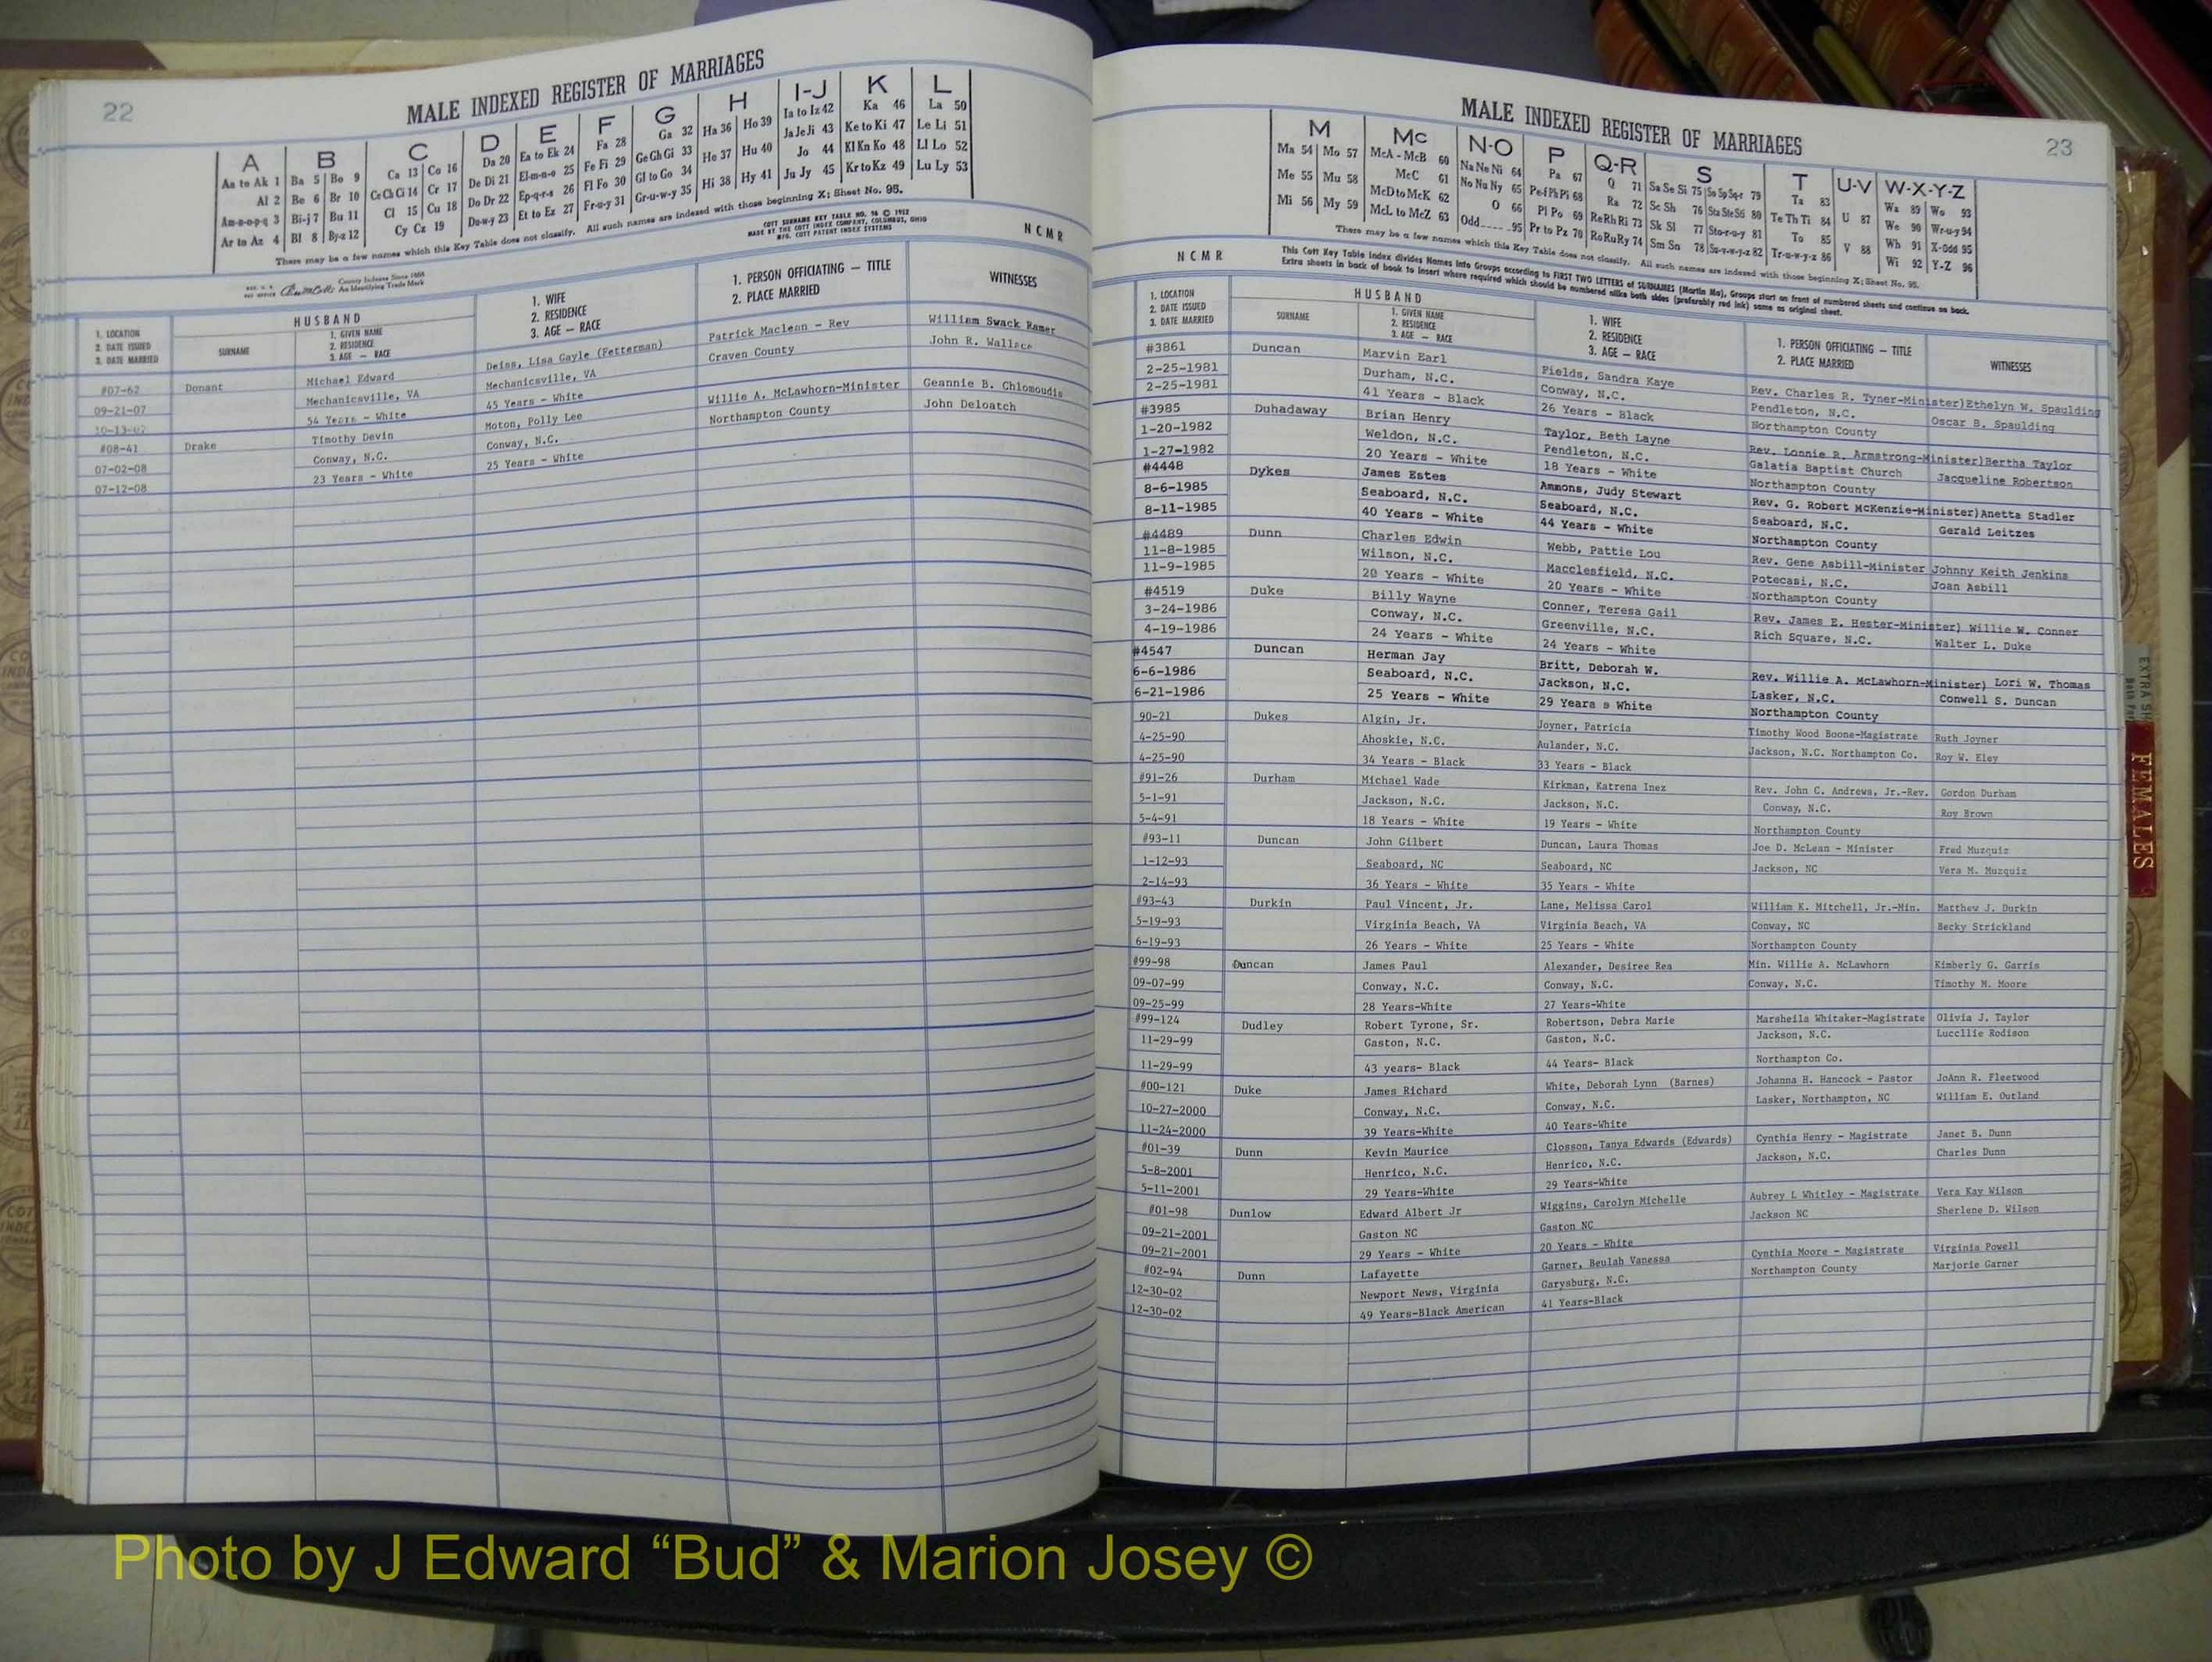 22
MALE INDEXED REGISTER OF MARRIAGES
A B C D E F G H I-J K L
Aa to Ak 1 Ba 5 Bo 9 Ca 13 Co 16 Da 20 Ea to Ek 24 Fa 28 Ga 32 Ha 36 Ho 39 Ia to Iz 42 Ka 46 La 50
Al 2 Be 6 Br 10 Ce Ch Ci 14 Cr 17 De Di 21 El-m-n-o 25 Fe Fi 29 Ge Gh Gi 33 He 37 Hu 40 Ja Je Ji 43 Ke to Ki 47 Le Li 51
Am-n-o-p-q 3 Bi-j 7 Bu 11 Cl 15 Cu 18 Do Dr 22 Ep-q-r-s 26 Fl Fo 30 Gl to Go 34 Hi 38 Hy 41 Jo 44 Kl Kn Ko 48 Ll Lo 52
Ar to Az 4 Bl 8 By-z 12 Cy Cz 19 Du-w-y 23 Et to Ez 27 Fr-u-y 31 Gr-u-w-y 35 Ju Jy 45 Kr to Kz 49 Lu Ly 53
There may be a few names which this Key Table does not classify. All such names are indexed with those beginning X; Sheet No. 95.
COTT SURNAME KEY TABLE NO. 96 © 1912
MADE BY THE COTT INDEX COMPANY, COLUMBUS, OHIO
MFG. COTT PATENT INDEX SYSTEMS
NCMR
County Indexes Since 1888
An Identifying Trade Mark
1. LOCATION
2. DATE ISSUED
3. DATE MARRIED
HUSBAND
SURNAME
1. GIVEN NAME
2. RESIDENCE
3. AGE — RACE
1. WIFE
2. RESIDENCE
3. AGE — RACE
1. PERSON OFFICIATING — TITLE
2. PLACE MARRIED
WITNESSES
#07-62 Donant Michael Edward Deiss, Lisa Gayle (Fetterman) Patrick Maclean - Rev William Swack Ramer
09-21-07 Mechanicsville, VA Mechanicsville, VA Craven County John R. Wallace
10-13-07 54 Years - White 45 Years - White
#08-41 Drake Timothy Devin Moton, Polly Lee Willie A. McLawhorn-Minister Geannie B. Chlomoudis
07-02-08 Conway, N.C. Conway, N.C. Northampton County John Deloatch
07-12-08 23 Years - White 25 Years - White
MALE INDEXED REGISTER OF MARRIAGES
23
M Mc N-O P Q-R S T U-V W-X-Y-Z
Ma 54 Mo 57 McA - McB 60 Na Ne Ni 64 Pa 67 Q 71 Sa Se Si 75 So Sp Sq-r 79 Ta 83 Wa 89 Wo 93
Me 55 Mu 58 McC 61 No Nu Ny 65 Pe-f Ph Pi 68 Ra 72 Sc Sh 76 Sta Ste Sti 80 Te Th Ti 84 U 87 We 90 Wr-u-y 94
Mi 56 My 59 McD to McK 62 O 66 Pl Po 69 Re Rh Ri 73 Sk Sl 77 Sto-r-u-y 81 To 85 Wh 91 X-Odd 95
McL to McZ 63 Odd 95 Pr to Pz 70 Ro Ru Ry 74 Sm Sn 78 Su-v-w-y-z 82 Tr-u-w-y-z 86 V 88 Wi 92 Y-Z 96
There may be a few names which this Key Table does not classify. All such names are indexed with those beginning X; Sheet No. 95.
NCMR
This Cott Key Table Index divides Names into Groups according to FIRST TWO LETTERS of SURNAMES (Martin Ma), Groups start on front of numbered sheets and continue on back.
Extra sheets in back of book to insert where required which should be numbered alike both sides (preferably red ink) same as original sheet.
1. LOCATION
2. DATE ISSUED
3. DATE MARRIED
HUSBAND
SURNAME
1. GIVEN NAME
2. RESIDENCE
3. AGE — RACE
1. WIFE
2. RESIDENCE
3. AGE — RACE
1. PERSON OFFICIATING — TITLE
2. PLACE MARRIED
WITNESSES
#3861 Duncan Marvin Earl Fields, Sandra Kaye Rev. Charles R. Tyner-Minister)Ethelyn W. Spaulding
2-25-1981 Durham, N.C. Conway, N.C. Pendleton, N.C. Oscar B. Spaulding
2-25-1981 41 Years - Black 26 Years - Black Northampton County
#3985 Duhadaway Brian Henry Taylor, Beth Layne Rev. Lonnie R. Armstrong-Minister)Bertha Taylor
1-20-1982 Weldon, N.C. Pendleton, N.C. Galatia Baptist Church Jacqueline Robertson
1-27-1982 20 Years - White 18 Years - White Northampton County
#4448 Dykes James Estes Ammons, Judy Stewart Rev. G. Robert McKenzie-Minister)Anetta Stadler
8-6-1985 Seaboard, N.C. Seaboard, N.C. Seaboard, N.C. Gerald Leitzes
8-11-1985 40 Years - White 44 Years - White Northampton County
#4489 Dunn Charles Edwin Webb, Pattie Lou Rev. Gene Asbill-Minister Johnny Keith Jenkins
11-8-1985 Wilson, N.C. Macclesfield, N.C. Potecasi, N.C. Joan Asbill
11-9-1985 20 Years - White 20 Years - White Northampton County
#4519 Duke Billy Wayne Conner, Teresa Gail Rev. James E. Hester-Minister) Willie W. Conner
3-24-1986 Conway, N.C. Greenville, N.C. Rich Square, N.C. Walter L. Duke
4-19-1986 24 Years - White 24 Years - White
#4547 Duncan Herman Jay Britt, Deborah W. Rev. Willie A. McLawhorn-Minister) Lori W. Thomas
6-6-1986 Seaboard, N.C. Jackson, N.C. Lasker, N.C. Conwell S. Duncan
6-21-1986 25 Years - White 29 Years s White Northampton County
90-21 Dukes Algin, Jr. Joyner, Patricia Timothy Wood Boone-Magistrate Ruth Joyner
4-25-90 Ahoskie, N.C. Aulander, N.C. Jackson, N.C. Northampton Co. Roy W. Eley
4-25-90 34 Years - Black 33 Years - Black
#91-26 Durham Michael Wade Kirkman, Katrena Inez Rev. John C. Andrews, Jr.-Rev. Gordon Durham
5-1-91 Jackson, N.C. Jackson, N.C. Conway, N.C. Roy Brown
5-4-91 18 Years - White 19 Years - White Northampton County
#93-11 Duncan John Gilbert Duncan, Laura Thomas Joe D. McLean - Minister Fred Muzquiz
1-12-93 Seaboard, NC Seaboard, NC Jackson, NC Vera M. Muzquiz
2-14-93 36 Years - White 35 Years - White
#93-43 Durkin Paul Vincent, Jr. Lane, Melissa Carol William K. Mitchell, Jr.-Min. Matthew J. Durkin
5-19-93 Virginia Beach, VA Virginia Beach, VA Conway, NC Becky Strickland
6-19-93 26 Years - White 25 Years - White Northampton County
#99-98 Duncan James Paul Alexander, Desiree Rea Min. Willie A. McLawhorn Kimberly G. Garris
09-07-99 Conway, N.C. Conway, N.C. Conway, N.C. Timothy M. Moore
09-25-99 28 Years-White 27 Years-White
#99-124 Dudley Robert Tyrone, Sr. Robertson, Debra Marie Marsheila Whitaker-Magistrate Olivia J. Taylor
11-29-99 Gaston, N.C. Gaston, N.C. Jackson, N.C. Luccllie Rodison
11-29-99 43 years- Black 44 Years- Black Northampton Co.
#00-121 Duke James Richard White, Deborah Lynn (Barnes) Johanna H. Hancock - Pastor JoAnn R. Fleetwood
10-27-2000 Conway, N.C. Conway, N.C. Lasker, Northampton, NC William E. Outland
11-24-2000 39 Years-White 40 Years-White
#01-39 Dunn Kevin Maurice Closson, Tanya Edwards (Edwards) Cynthia Henry - Magistrate Janet B. Dunn
5-8-2001 Henrico, N.C. Henrico, N.C. Jackson, N.C. Charles Dunn
5-11-2001 29 Years-White 29 Years-White
#01-98 Dunlow Edward Albert Jr Wiggins, Carolyn Michelle Aubrey L Whitley - Magistrate Vera Kay Wilson
09-21-2001 Gaston NC Gaston NC Jackson NC Sherlene D. Wilson
09-21-2001 29 Years - White 20 Years - White
#02-94 Dunn Lafayette Garner, Beulah Vanessa Cynthia Moore - Magistrate Virginia Powell
12-30-02 Newport News, Virginia Garysburg, N.C. Northampton County Marjorie Garner
12-30-02 49 Years-Black American 41 Years-Black
FEMALES
Photo by J Edward “Bud” & Marion Josey ©